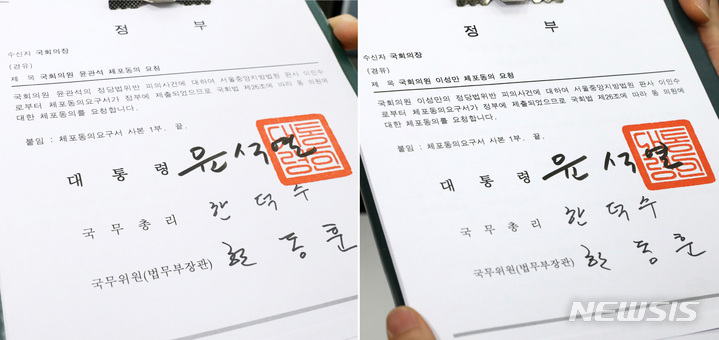 정 부
수신자 국회의장
(경유)
제 목 국회의원 윤관석 체포동의 요청
국회의원 윤관석의 정당법위반 피의사건에 대하여 서울중앙지방법원 판사 이민수
로부터 체포동의요구서가 정부에 제출되었으므로 국회법 제26조에 따라 동 의원에
대한 체포동의를 요청합니다.
붙임 : 체포동의요구서 사본 1부. 끝.
대 통 령 윤석열
대통령의인
국 무 총 리 한덕수
국무위원(법무부장관) 한동훈
정 부
수신자 국회의장
(경유)
제 목 국회의원 이성만 체포동의 요청
국회의원 이성만의 정당법위반 피의사건에 대하여 서울중앙지방법원 판사 이민수
로부터 체포동의요구서가 정부에 제출되었으므로 국회법 제26조에 따라 동 의원에
대한 체포동의를 요청합니다.
붙임 : 체포동의요구서 사본 1부. 끝.
대 통 령 윤석열
대통령의인
국 무 총 리 한덕수
국무위원(법무부장관) 한동훈
NEWSIS